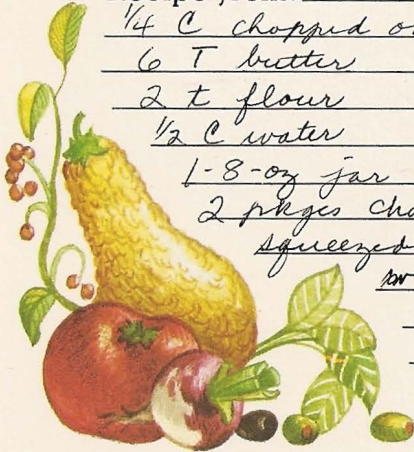 ¼ C chopped
6 T butter
2 t flour
½ C water
1-8-oz jar
2 pkges
squeezed